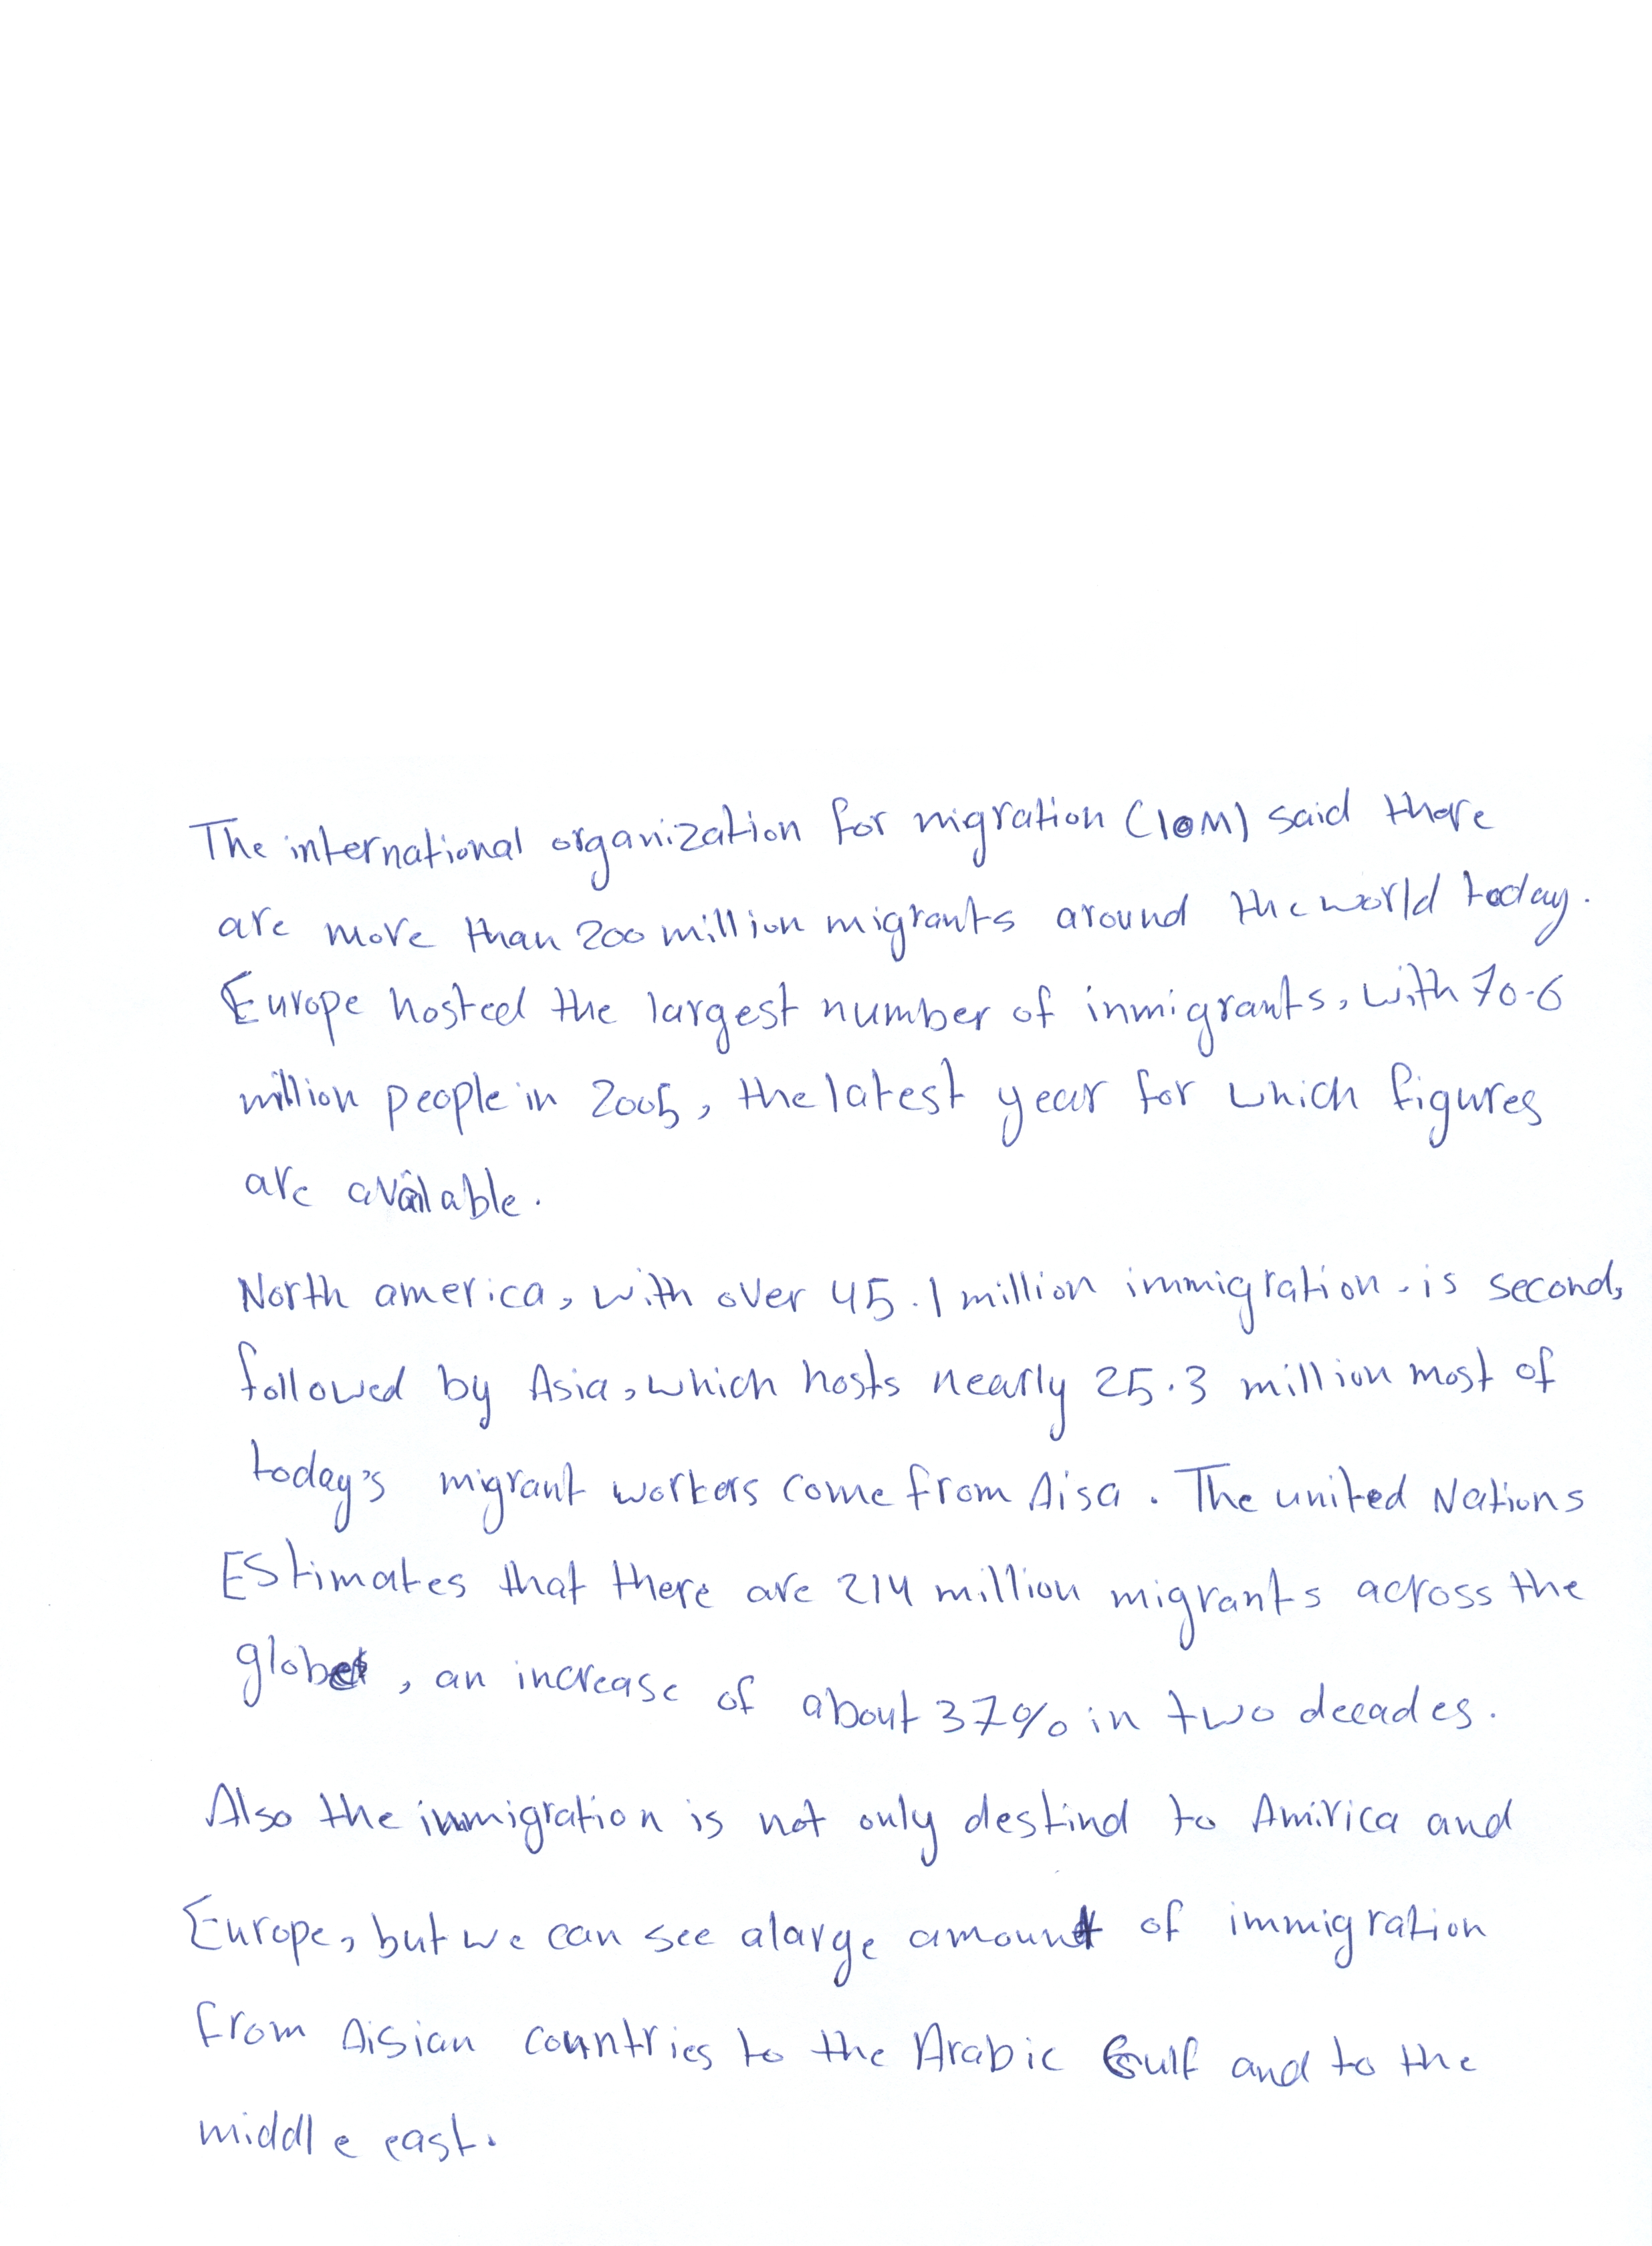 The international organization for migration (IOM) said there
are more than 200 million migrants around the world today.
Europe hosted the largest number of inmigrants, with 70.6
million people in 2005, the latest year for which figures
are available.
North america, with over 45.1 million immigration. is second,
followed by Asia, which hosts nearly 25.3 million most of
today's migrant workers come from Aisa. The united Nations
Estimates that there are 214 million migrants across the
globe, an increase of about 37% in two decades.
Also the immigration is not only destind to Amirica and
Europe, but we can see alarge amount of immigration
from Aisian countries to the Arabic Gulf and to the
middle east.